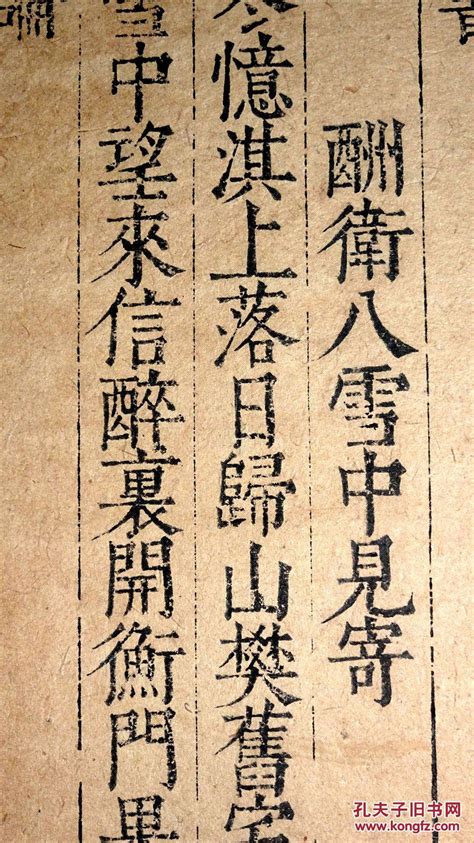 酬衛八雪中見寄
冬憶淇上落日歸山樊舊宅
雪中望來信醉裏開衡門果
孔夫子旧书网
www.kongfz.com